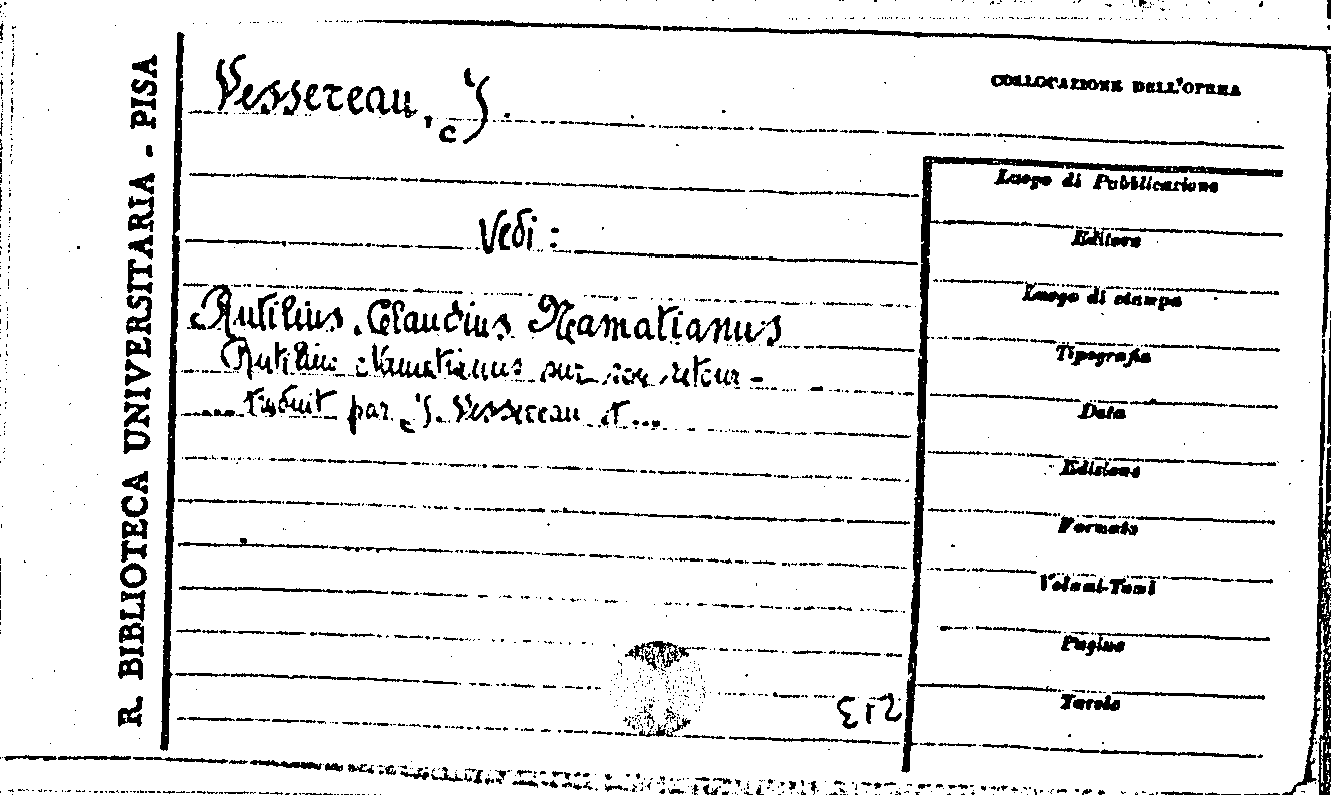 R. BIBLIOTECA UNIVERSITARIA - PISA
Vessereau, J.
COLLOCAZIONE DELL'OPERA
Vedi :
Rutilius Claudius Namatianus
Rutilius Namatianus sur son retour -
... traduit par J. Vessereau et ...
Luogo di Pubblicazione
Editore
Luogo di stampa
Tipografia
Data
Edizione
Formato
Volumi-Tomi
Pagine
Tavole